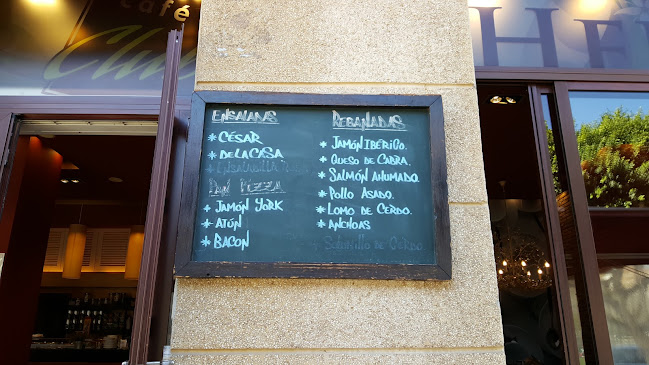 café
ENSALADAS
* CÉSAR
* DE LA CASA
PAN PIZZA
* JAMÓN YORK
* ATÚN
* BACON
REBANADAS
* JAMÓN IBÉRICO.
* QUESO DE CABRA.
* SALMÓN AHUMADO.
* POLLO ASADO.
* LOMO DE CERDO.
* ANCHOAS
SOLOMILLO DE CERDO